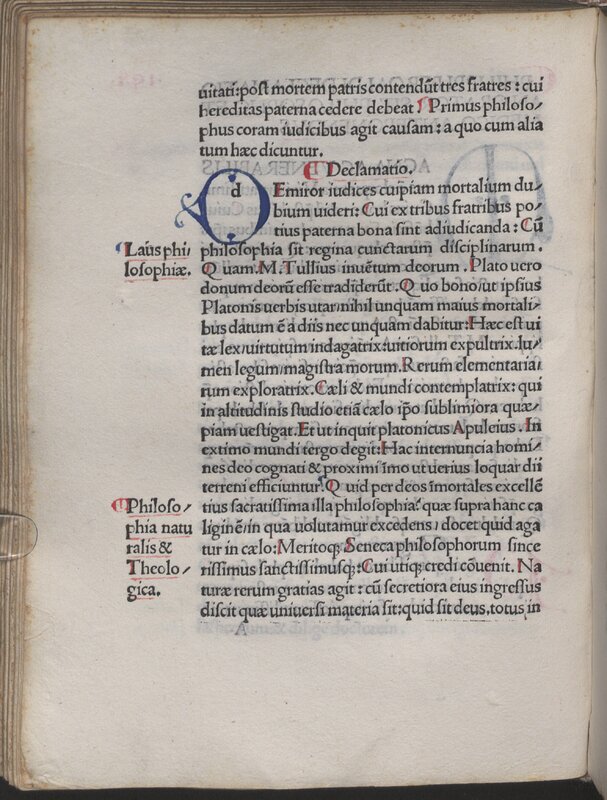 uitati: post mortem patris contendūt tres fratres: cui
hereditas paterna cedere debeat ¶ Primus philoso/
phus coram iudicibus agit causam: a quo cum alia
tum hæc dicuntur.
¶ Declamatio.
d Emiror iudices cuipiam mortalium du/
bium uideri: Cui ex tribus fratribus po/
tius paterna bona sint adiudicanda: Cū
¶ Laus phi/
losophiæ.
philosophia sit regina cunctarum disciplinarum.
Quam.M.Tullius inuētum deorum. Plato uero
donum deorū esse tradiderūt. Quo bono/ut ipsius
Platonis uerbis utar/nihil unquam maius mortali/
bus datum ē a diis nec unquam dabitur: Hæc est ui
tæ lex/uirtutum indagatrix: uitiorum expultrix.lu/
men legum/magistra morum. Rerum elementaria/
rum exploratrix. Cæli & mundi contemplatrix: qui
in altitudinis studio etiā cælo ipo sublimiora quæ/
piam uestigat. Et ut inquit platonicus Apuleius. In
extimo mundi tergo degit: Hac internuncia homi/
nes deo cognati & proximi īmo ut uerius loquar dii
terreni efficiuntur. Quid per deos īmortales excellē
¶ Philoso/
phia natu
ralis &
Theolo/
gica.
tius sacratissima illa philosophia? quæ supra hanc ca
liginē/in qua uolutamur excedens/docet quid aga
tur in cælo: Meritoq; Seneca philosophorum since
rissimus sanctissimusq;: Cui utiq; credi cōuenit. Na
turæ rerum gratias agit: cū secretiora eius ingressus
discit quæ uniuersi materia sit: quid sit deus.totus in